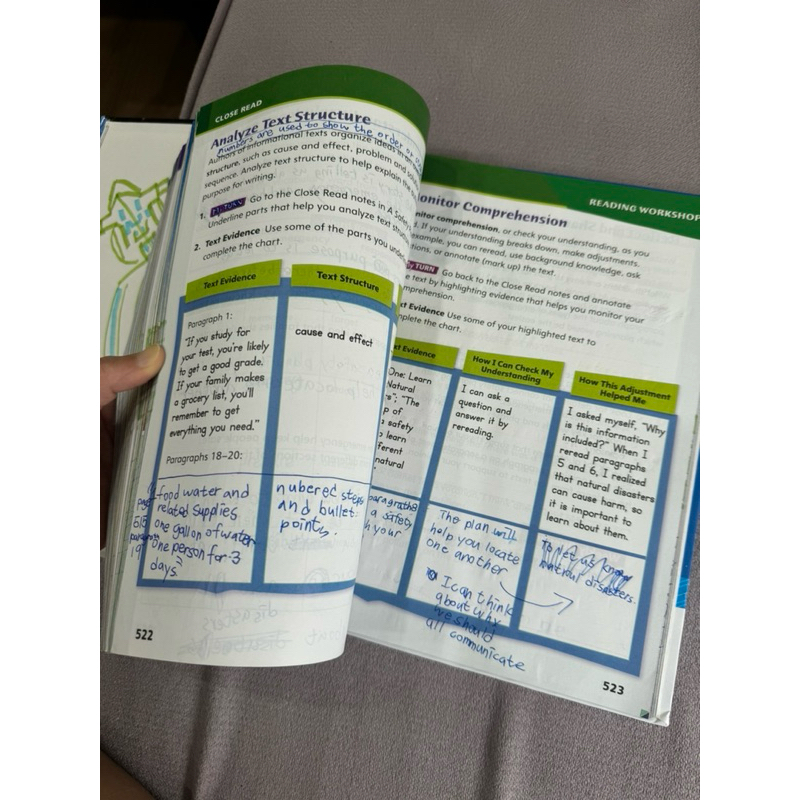 CLOSE READ
Analyze Text Structure
Numbers are used to show the order
Authors of informational texts organize ideas in
structure, such as cause and effect, problem and
sequence. Analyze text structure to help explain the
purpose for writing.
1. MY TURN Go to the Close Read notes in A Safety
Underline parts that help you analyze text
2. Text Evidence Use some of the parts you
complete the chart.
Text Evidence
Text Structure
Paragraph 1:
"If you study for
your test, you're likely
to get a good grade.
If your family makes
a grocery list, you'll
remember to get
everything you need."
cause and effect
Paragraphs 18–20:
food water and
related supplies
one gallon of water
one person for 3
days."
page
515
19
nubered steps
and bullet
points.
522
READING WORKSHOP
Monitor Comprehension
monitor comprehension, or check your understanding, as you
If your understanding breaks down, make adjustments.
example, you can reread, use background knowledge, ask
or annotate (mark up) the text.
MY TURN Go back to the Close Read notes and annotate
text by highlighting evidence that helps you monitor your
comprehension.
Text Evidence Use some of your highlighted text to
complete the chart.
Text Evidence
How I Can Check My
Understanding
How This Adjustment
Helped Me
One: Learn
Natural
"The
p of
safety
learn
natural
I can ask a
question and
answer it by
rereading.
I asked myself, "Why
is this information
included?" When I
reread paragraphs
5 and 6, I realized
that natural disasters
can cause harm, so
it is important to
learn about them.
a safety
your
The plan will
help you locate
one another
I can think
about why
we should
all communicate
to let us know
natural disasters.
523